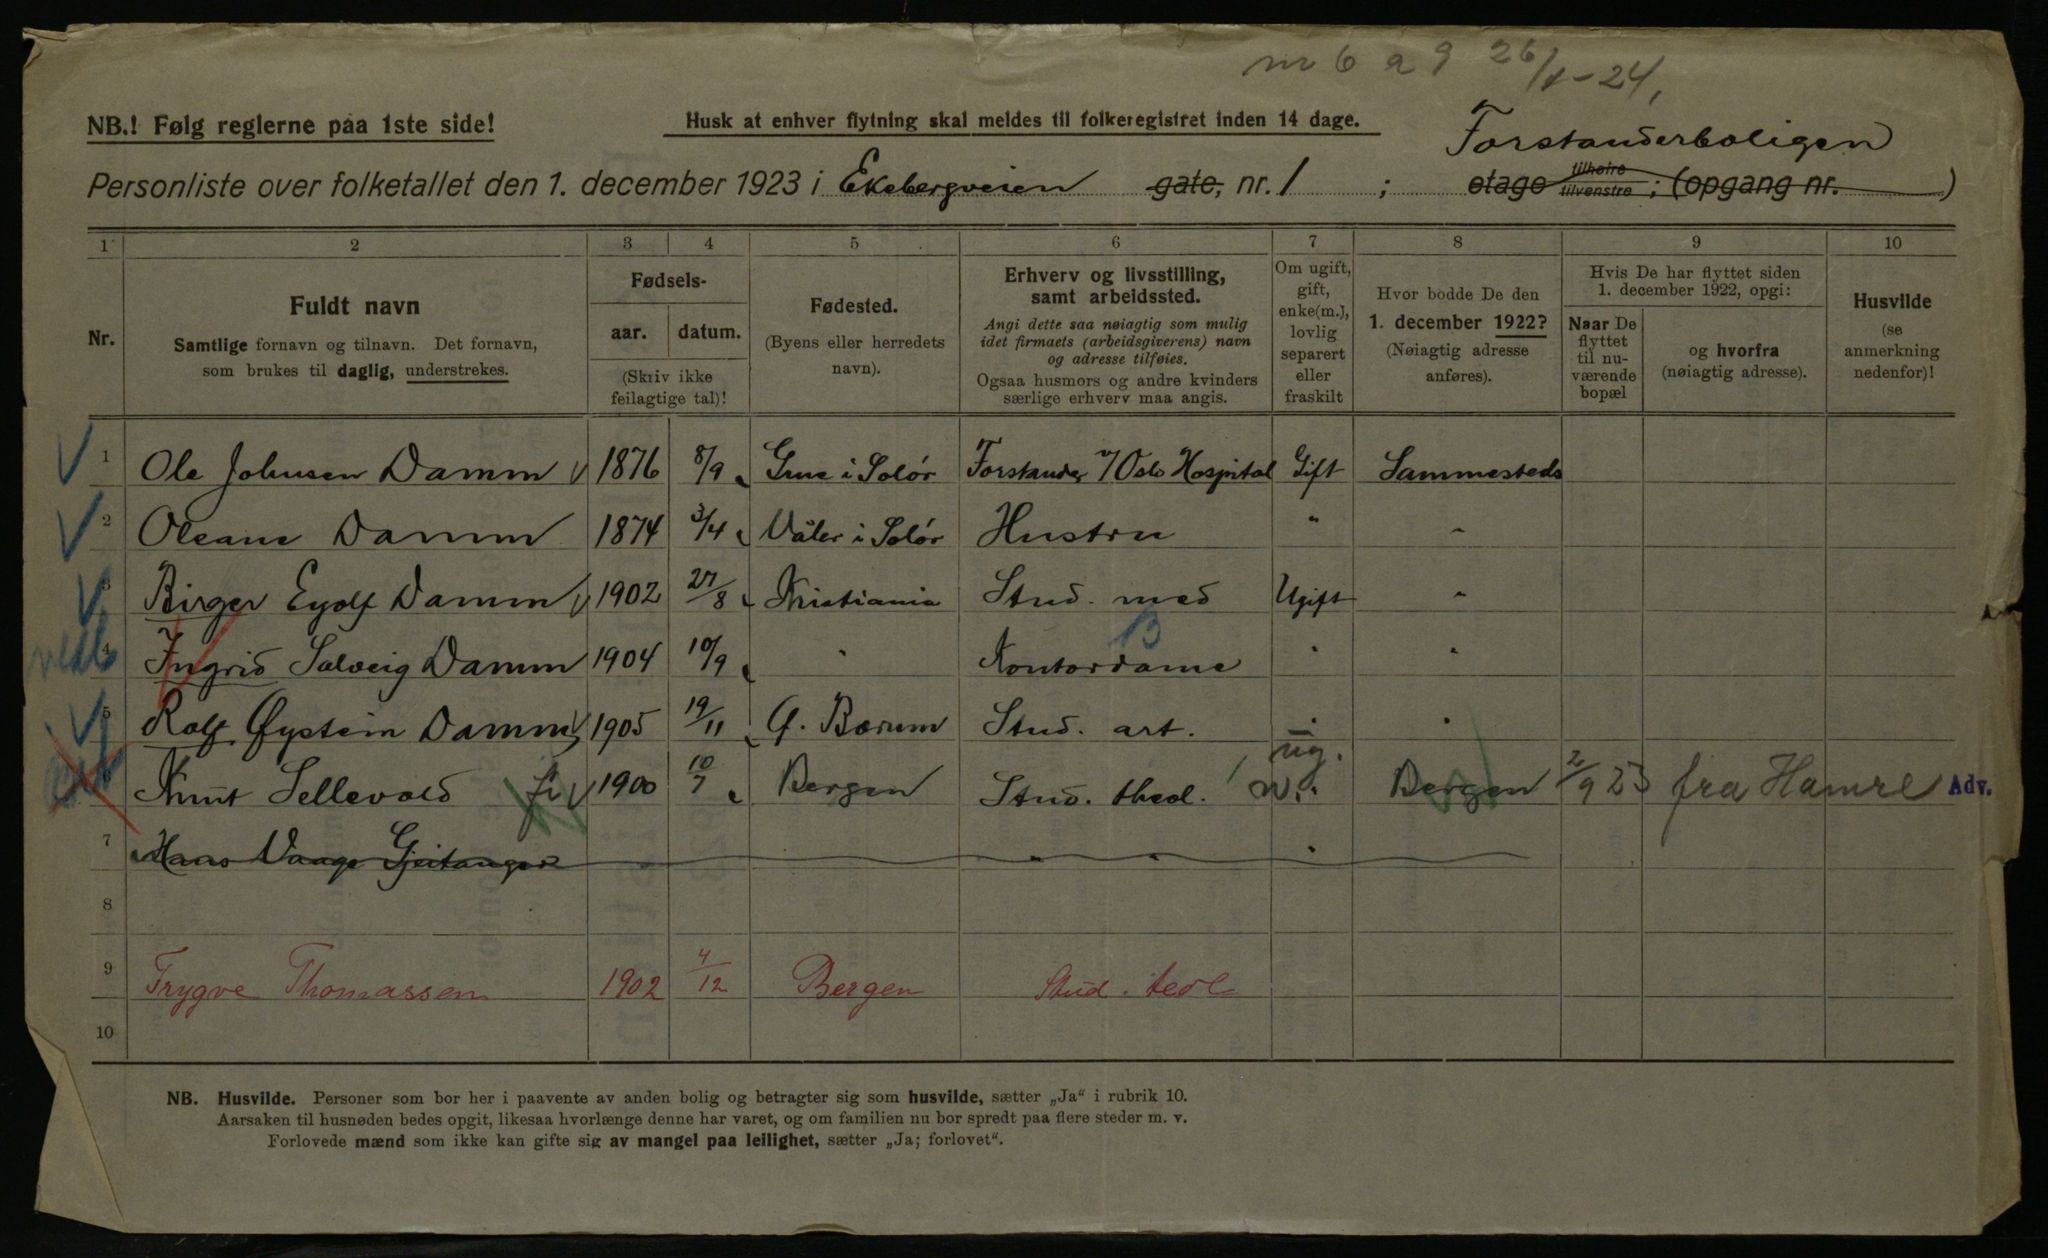 m 6 a 9 26/1-24,
NB.! Følg reglerne paa 1ste side!
Husk at enhver flytning skal meldes til folkeregistret inden 14 dage.
Forstanderboligen
Personliste over folketallet den 1. december 1923 i Ekebergveien gate, nr. 1 ; etage tilhøire tilvenstre ; (opgang nr. )
1 2 3 4 5 6 7 8 9 10
Nr.
Fuldt navn
Samtlige fornavn og tilnavn. Det fornavn,
som brukes til daglig, understrekes.
Fødsels-
aar. datum.
(Skriv ikke
feilagtige tal)!
Fødested.
(Byens eller herredets
navn).
Erhverv og livsstilling,
samt arbeidssted.
Angi dette saa nøiagtig som mulig
idet firmaets (arbeidsgiverens) navn
og adresse tilføies.
Ogsaa husmors og andre kvinders
særlige erhverv maa angis.
Om ugift,
gift,
enke(m.),
lovlig
separert
eller
fraskilt
Hvor bodde De den
1. december 1922?
(Nøiagtig adresse
anføres).
Hvis De har flyttet siden
1. december 1922, opgi:
Naar De
flyttet
til nu-
værende
bopæl
og hvorfra
(nøiagtig adresse).
Husvilde
(se
anmerkning
nedenfor)!
1 Ole Johnsen Damm 1876 8/9 Grue i Solør Forstander v/ Oslo Hospital Gift Sammesteds
2 Oleane Damm 1874 3/4 Våler i Solør Hustru " "
3 Birger Eyolf Damm 1902 27/8 Kristiania Stud. med Ugift "
4 Ingrid Solveig Damm 1904 10/9 " Kontordame " "
B
5 Rolf Øystein Damm 1905 19/11 Ø. Bærum Stud. art. " "
ug.
6 Knut Sellevold 1900 10/7 Bergen Stud. theol. " Bergen 2/9 23 fra Hamre Adv.
7 Hans Vaage Gjeitanger " " "
8
9 Trygve Thomassen 1902 4/12 Bergen Stud. teol
10
NB. Husvilde. Personer som bor her i paavente av anden bolig og betragter sig som husvilde, sætter „Ja“ i rubrik 10.
Aarsaken til husnøden bedes opgit, likesaa hvorlænge denne har varet, og om familien nu bor spredt paa flere steder m. v.
Forlovede mænd som ikke kan gifte sig av mangel paa leilighet, sætter „Ja; forlovet“.